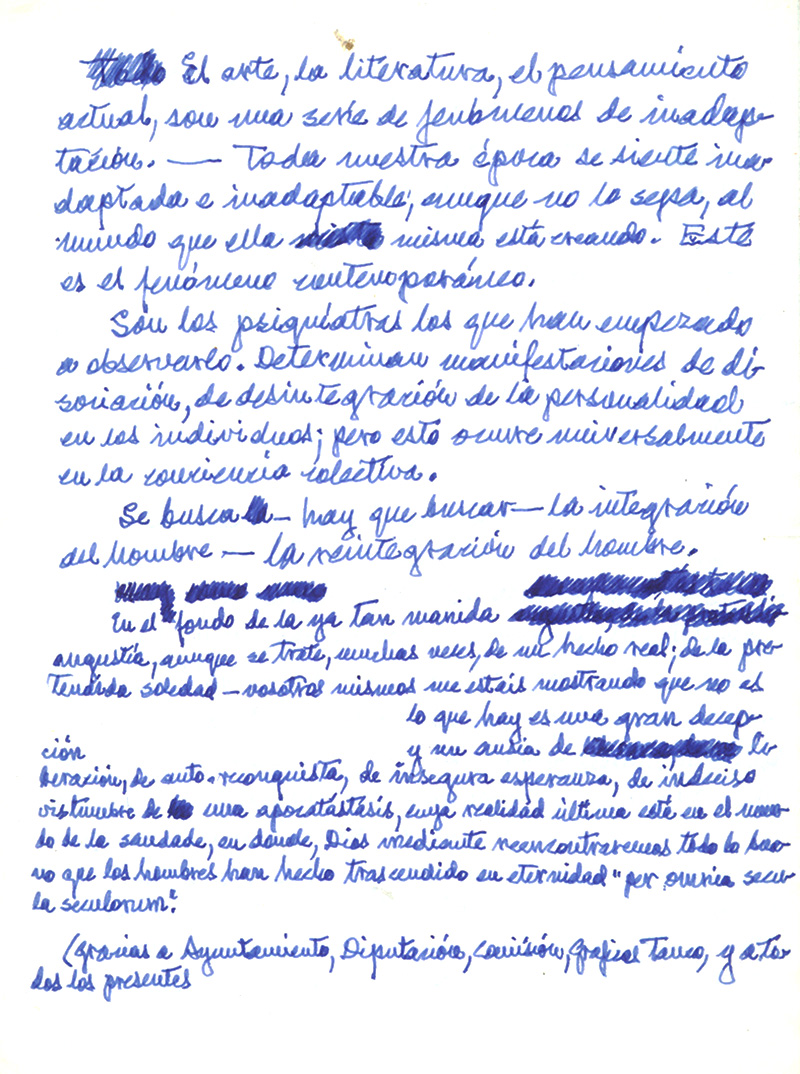 El arte, la literatura, el pensamiento
actual, son una serie de fenómenos de inadap-
tación. — Toda nuestra época se siente ina-
daptada e inadaptable, aunque no lo sepa, al
mundo que ella misma está creando. Este
es el fenómeno contemporáneo.
Son los psiquíatras los que han empezado
a observarlo. Determinan manifestaciones de di-
sociación, de desintegración de la personalidad
en los individuos; pero esto ocurre universalmente
en la conciencia colectiva.
Se busca — hay que buscar — la integración
del hombre — la reintegración del hombre.
En el fondo de la ya tan manida
angustia, aunque se trate, muchas veces, de un hecho real; de la pre-
tendida soledad — vosotros mismos me estáis mostrando que no es
lo que hay es una gran decep-
ción y un ansia de li-
beración, de auto-reconquista, de insegura esperanza, de indeciso
vislumbre de una apocatástasis, cuya realidad última está en el mun-
do de la saudade, en donde, Dios mediante reencontraremos todo lo bue-
no que los hombres han hecho trascendido en eternidad "per omnia secu-
la seculorum".
(Gracias a Ayuntamiento, Diputación, Comisión, Graficas Tanco, y a to-
dos los presentes